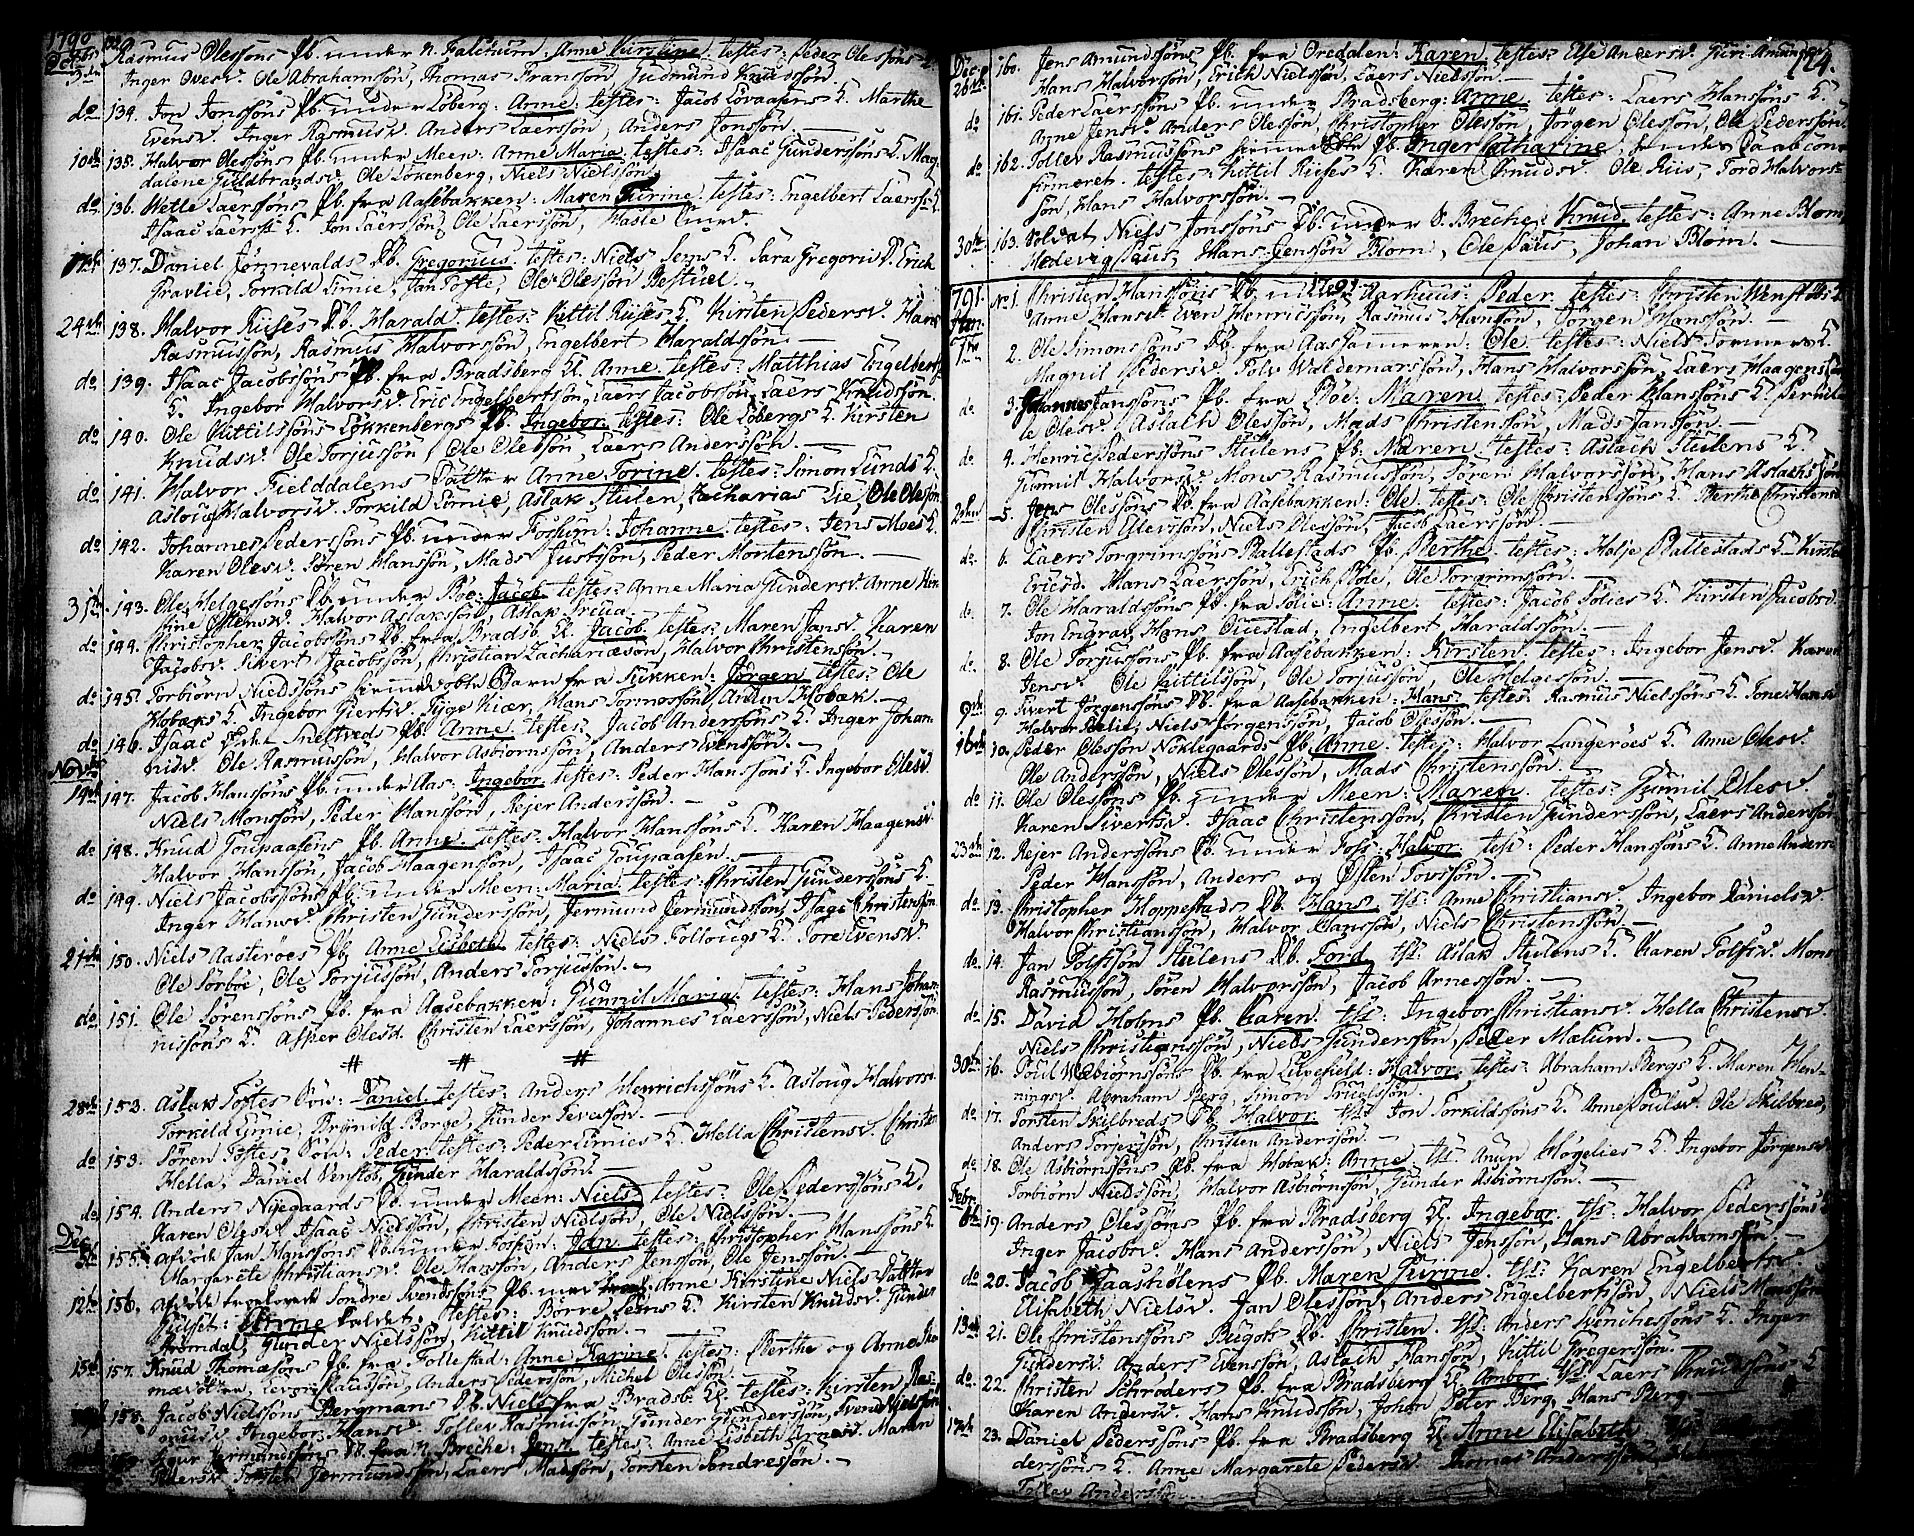 1790
Octbr
3die Rasmus Olessøns Pb. under N. Falchum: Anne Kirstine. testes: Peder Olessøns
Inger Ovesd. Ole Abrahamsøn, Thomas Franssøn, Gudmund Knudssøn.
do 134. Jon Jonssøns Pb. under Løberg: Anne. testes: Jacob Lovaasens K. Marthe
Evensd. Inger Rasmusd. Anders Laerssøn, Anders Jonssøn.
10de 135. Halvor Olessøns Pb. under Meen: Anne Maria. testes: Isaac Gunderssøns K. Mag
dalene Guldbrandsd. Ole Løkenberg, Niels Nielssøn.
do 136. Wetle Laerssøns Pb. fra Aasebakken: Maren testes: Engelbert Laerss. K.
Isaac Laerss. K. Jon Laerssøn, Ole Laerssøn,
17de 137. Daniel Jønnevalds Db. Gregorius. testes: Niels Sems K. Sara Gregorii D. Erich
Gravlie, Torkild Limie, Jan Tofte, Ole Olessøn Bestuel.
24de 138. Halvor Riises Db. Harald testes: Kittil Riises K. Kirsten Pedersd. Hans
Rasmussøn, Rasmus Halvorssøn, Engelbert Haraldssøn.
do 139. Isaac Jacobssøns Pb. fra Bradsberg Kl. Anne. testes: Matthias Engelberts.
K. Ingebor Halvorsd. Eric Engelbertssøn, Laers Jacobssøn, Laers Knudssøn.
do 140. Ole Kittilssøns Løkkenbergs Pb. Ingebor. testes: Ole Løbergs K. Kirsten
Knudsd. Ole Torjussøn, Ole Olessøn, Laers Anderssøn.
do 141. Halvor Fielddalens Datter Anne Torine. testes: Simon Lunds K.
Asloug Halvorsd. Torkild Limie, Aslak Stulen, Zacharias Lie, Ole Olessøn
do 142. Johannes Pederssøns Pb. under Fossum: Johanne testes: Jens Moes K.
Karen Olesd. Søren Hanssøn, Mads Justssøn, Peder Mortenssøn.
31te 143. Ole Helgessøns Db. under Bøe: Jacob. testes: Anne Maria Gundersd. Anne Kir
stine Østensd. Halvor Aslakssøn, Aslak
do 144. Christopher Jacobssøns Db. fra Bradsb. Kl. Jacob. testes: Maren Jansd. Karen
Jacobsd. Sivert Jacobssøn, Christian Zachariæsøn, Halvor Christenssøn.
do 145. Torbiørn Nielssøns hiemmedøbte Barn fra Lukken: Jørgen. testes: Ole
Hobæks K. Ingebor Giertsd. Tyge Kiær, Hans Tormossøn, Anun Hobæk.
do 146. Isaac Snelteds Pb. Anne. testes: Jacob Anderssøns K. Inger Johan
nisd. Ole Rasmussøn, Halvor Asbiørnssøn, Anders Evenssøn.
Novbr
14de 147. Jacob Hanssøns Pb. under Aas: Ingebor. testes: Peder Hanssøns K. Ingebor Olesd.
Niels Monssøn, Peder Hanssøn, Rejer Anderssøn.
do 148. Knud Goupaasens Pb. Anne. testes: Halvor Hanssøns K. Karen Haagensd.
Halvor Hanssøn, Jacob Haagenssøn, Isaac Goupaasen.
do 149. Niels Jacobssøns Pb. under Meen: Maria. testes: Christen Gunderssøns K.
Inger Hansd. Christen Gunderssøn, Jermund Jermundssøn, Isaac Christenssøn.
21de 150. Niels Aasterøes Pb. Anne Lisbeth. testes: Niels Follougs K. Tore Evensd.
Ole Sørbøe, Ole Torjussøn, Anders Torjussøn.
do 151. Ole Sørenssøns Pb. fra Aasebakken: Gunnil Maria. testes: Hans Johan
nissøns K. Asper Olesd. Christen Laerssøn, Johannes Laerssøn, Niels Pederssøn.
# # #
28de 152. Aslak Toftes Søn: Daniel testes: Anders Henrichssøns K. Asloug Halvorsd.
Torkild Limie, Brynild Borge, Gunder
do 153. Søren Toftes Søn: Peder testes: Peder Limies K. Hella Christensd. Christen
Hella, Daniel Venstøb, Gunder Haraldssøn.
do 154. Anders Nyegaards Db. under Meen: Niels. testes: Ole Pederssøns K.
Karen Olesd. Isaac Nielssøn, Christen Nielssøn, Ole Nielssøn.
Dec.
5te 155. Afdøde Jan Hanssøns Db. under Fossum: Jan. testes: Christopher Hanssøns K.
Margarete Christiansd. Ole Hanssøn, Anders Jenssøn, Ole Jenssøn.
12te 156. Afdøde trælovede Sondre Svendssøns Pb. med Anne Kirstine Niels Datter
Gulset: Anne kaldet. testes: Børre Sems K. Kirsten Knudsd. Gunder
Aromdal, Gunder Nielssøn, Kittil Knudssøn.
15de 157. Knud Thomæsøns Pb. fra Follestad: Anne Karine. testes: Berthe og Anne
Anders Pederssøn, Michel Olessøn.
158. Jacob Nielssøns Bergmans Db. Niels fra Bradsb. Kl. testes: Kirsten Ras
musd. Ingebor Hansd. Tollev Rasmussøn, Gunder Gunderssøn, Svend Nielssøn
Jermundssøns Db. fra N. Breche: Jens. testes: Anne Lisbeth Arnesd. Maren
Pedersd. Torsten Jermundssøn, Laers Madssøn, Torsten Sondressøn.
174.
Dec.
26de 160. Jens Amundssøns Pb. fra Oredalen: Karen. testes: Else Andersd. Guri Amundsd.
Hans Halvorssøn, Erich Nielssøn, Laers Nielssøn.
do 161. Peder Laerssøns Pb. under Bradsberg: Anne. testes: Laers Hanssøns K.
Anne Jensd. Anders Olessøn, Christopher Olessøn, Jørgen Olessøn, Ole Pederssøn.
do 162. Tollev Rasmussøns hiemmedøbte Pb. Inger Catharine, under Daab con
firmeret. testes: Kittil Riises K. Karen Knudsd. Ole Riis, Tord Halvors
søn, Hans Halvorssøn.
30te 163. Soldat Niels Jonssøns Db. under S. Breche: Knud. testes: Anne Blom,
Hedevig Paus, Hans Jenssøn Blom, Ole Paus, Johan Blom.
1791.
Jan. 1791
1ste No 1. Christen Hanssøns Db. under Aarhuus: Peder. testes: Christen Wenstøbs K.
Anne Hansd. Even Henricssøn, Rasmus Hanssøn, Jørgen Hanssøn.
2. Ole Simonssøns Db. fra Aastameren: Ole testes: Niels Tormers K.
Magnil Pedersd. Tolv Waldemarssøn, Hans Halvorssøn, Laers Haagenssøn
do 3. Johannes Janssøns Pb. fra Bøe: Maren testes: Peder Hanssøns K. Pernil
le Olesd. Aslach Olessøn, Mads Christenssøn, Mads Janssøn.
do 4. Henric Pederssøns Stulens Pb. Maren testes: Aslach Stulens K.
Gunnil Halvorsd. Mons Rasmussøn, Søren Halvorssøn, Hans Aslachssøn
2den 5. Jens Olessøns Db. fra Aasebakken: Ole testes: Ole Christenssøns K. Marthe Christensd.
Christen Olevssøn, Niels Olessøn, Jacob Laerssøn.
do 6. Laers Torgrimssøns Ballestads Pb. Berthe testes: Holje Ballestads K. Kirsten
Ericsd. Hans Laerssøn, Erich Bøle, Ole Torgrimssøn.
do 7. Ole Haraldssøns Pb. fra Folie: Anne. testes: Jacob Folies K. Kirsten Jacobsd.
Jon Engrav, Hans Ouestad, Engelbert Haraldssøn.
do 8. Ole Torjussøns Pb. fra Aasebakken: Kirsten testes: Ingebor Jensd. Karen
Jensd. Ole Kittilssøn, Ole Torjussøn, Ole Helgessøn.
9de 9. Sivert Jørgenssøns Db. fra Aasebakken: Hans. testes: Rasmus Nielssøns K. Tone Hansd.
Halvor Folie, Niels Jørgenssøn, Jacob Olessøn.
16de 10. Peder Olessøn Nøklegaards Pb. Anne. testes: Halvor Langerøes K. Anne Olesd.
Ole Anderssøn, Niels Olessøn, Mads Christenssøn.
do 11. Ole Olessøns Pb. under Meen: Maren. testes: Gunnil Olesd.
Karen Sivertsd. Isaac Christenssøn, Christen Gunderssøn, Laers Anderssøn
23de 12. Rejer Anderssøns Db. under Foss: Halvor. test: Peder Hanssøns K. Anne Andersd.
Peder Hanssøn, Anders og Østen Tovssøn.
do 13. Christopher Hoppestads Db. Hans. tss: Anne Christiansd. Ingebor Danielsd.
Halvor Christianssøn, Halvor Hanssøn, Niels Christenssøn.
do 14. Jan Tolfssøn Stulens Db. Tord. tss: Aslak Stulens K. Karen Tolfsd. Mons
Rasmussøn, Søren Halvorssøn, Jacob Arnessøn.
do 15. David Holms Pb. Karen. tss: Ingebor Christiansd. Hella Christensd.
Niels Christianssøn, Niels Gunderssøn, Peder Mælum.
30te 16. Poul Wæbiørnssøns Db. fra Limefield: Halvor. testes: Abraham Bergs K. Maren Hen
ningsd. Abraham Berg, Simon Truelssøn.
do 17. Torsten Skilbreds Db. Halvor. tss: Jon Torkildssøns K. Anne Poulsd. Ole Skilbred,
Anders Torjerssøn, Christen Anderssøn.
do 18. Ole Asbiørnssøns Pb. fra Hobæk: Anne. tss: Anun Høgelies K. Ingebor Jørgensd.
Torbiørn Nielssøn, Halvor Asbiørnssøn, Gunder Asbiørnssøn.
Febr.
6te 19. Anders Olessøns Pb. fra Bradsberg Kl. Ingebor. tss: Halvor Pederssøns K.
Inger Jacobsd. Hans Anderssøn, Niels Jenssøn, Hans Abrahamssøn.
do 20. Jacob Faasholens Pb. Maren Gurine. tss: Karen Engelbertsd.
Elisabeth Nielsd. Jan Olessøn, Anders Engelbertssøn, Niels Monssøn
13de 21. Ole Christenssøns Bugots Db. Christen. tss: Anders Svenchessøns K. Inger
Gundersd. Anders Evenssøn, Aslach Hanssøn, Kittil Gregerssøn.
do 22. Christen Schrøders Pb. fra Bradsberg Kl. Annbor. tss: Laers Knudssøns K.
Karen Andersd. Hans Knudssøn, Johan Peter Berg, Hans Berg.
17de 23. Daniel Pederssøns Pb. fra Bradsberg Kl. Anne Elisabeth
derssøns K. Anne Margarete Pedersd. Thomas Anderssøn,
Tollev Anderssøn.